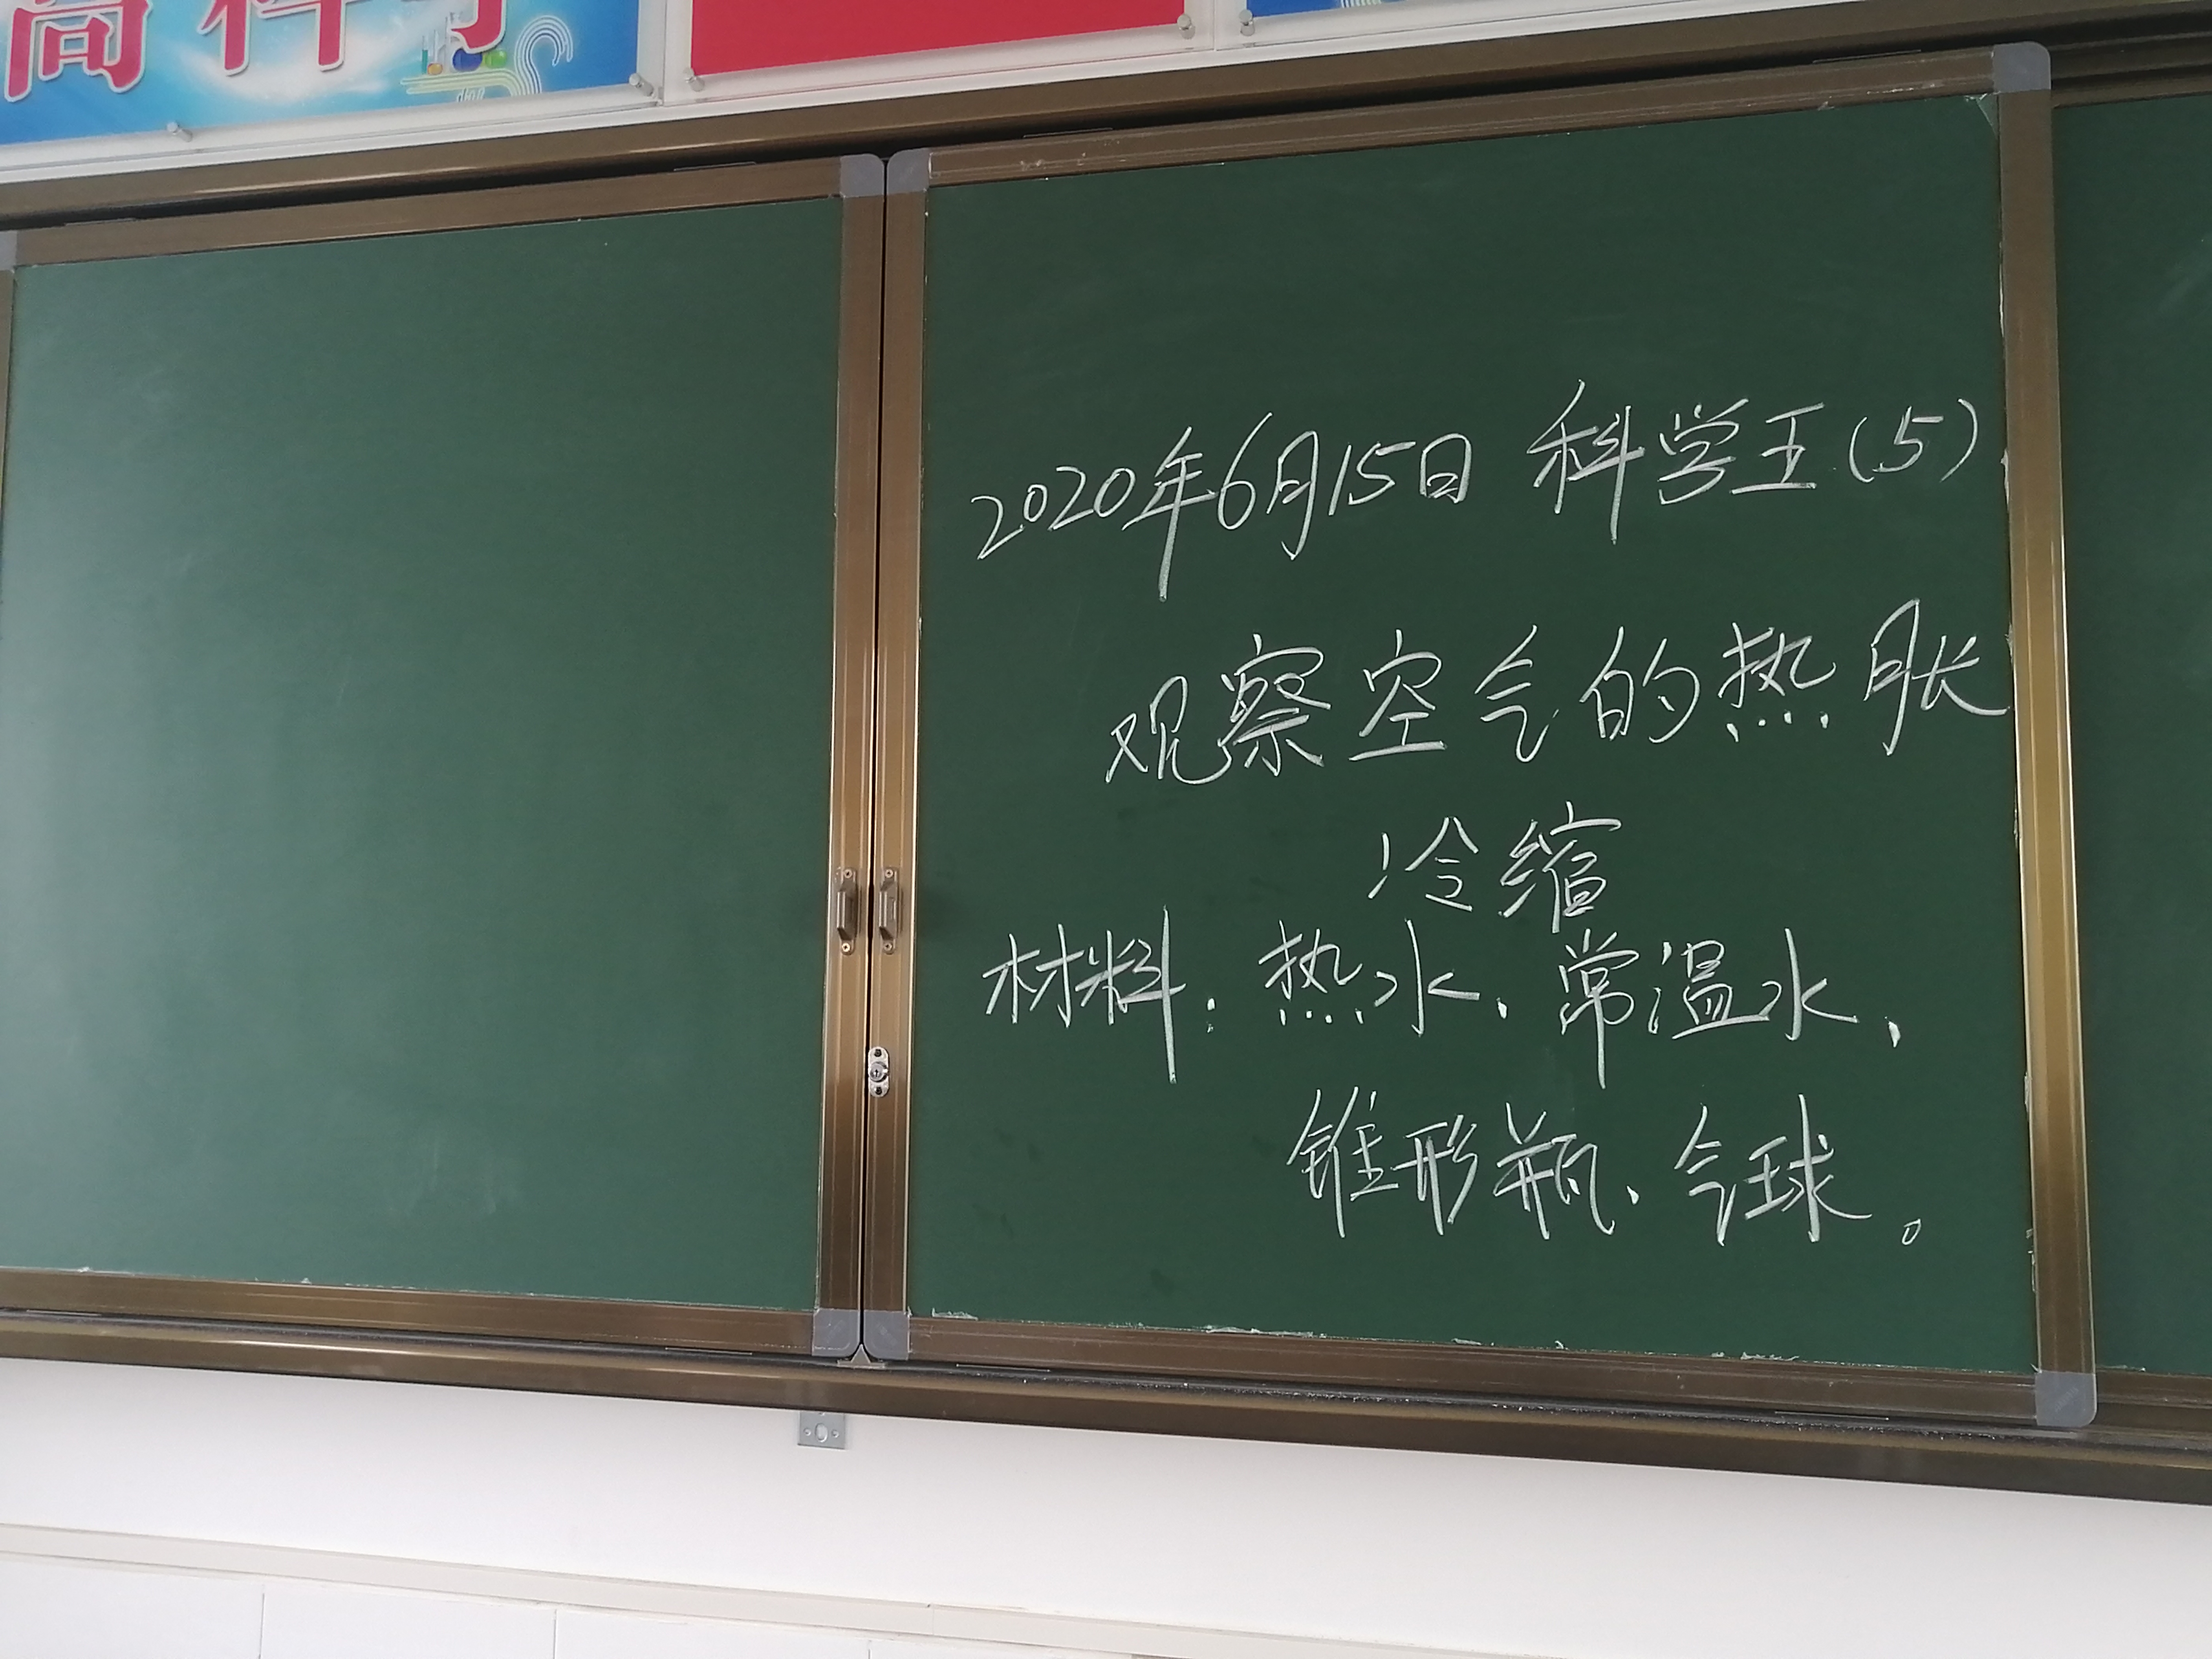 高科学
2020年6月15日 科学王(5)
观察空气的热胀
冷缩
材料:热水、常温水、
锥形瓶、气球。